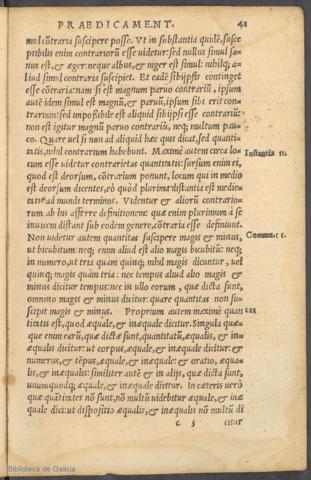 PRAEDICAMENT. 41
mul cōtraria suscipere posse. Vt in substantia quidē, susce
ptibilis enim contrariorū esse uidetur: sed nullus simul sa-
nus est, & æger: neque albus, & niger est simul: nihilq; a-
liud simul contraria suscipiet. Et eadē sibijpsis continget
esse cōtraria: nam si est magnum paruo contrariū, ipsum
autē idem simul est magnū, & paruū, ipsum sibi erit con-
trarium: sed impoßibile est aliquid sibijpsi esse contrariū:
non est igitur magnū paruo contrariū, neq; multum pau-
co. Quare uel si non ad aliquid hæc quis dicat, sed quanti-
tatis, nihil contrarium habebunt. Maximè autem circa lo-
cum esse uidetur contrarietas quantitatis: sursum enim ei,
quod est deorsum, cōtrarium ponunt, locum qui in medio
est deorsum dicentes, eò quòd plurima distantia est medie-
tatis ad mundi terminos. Videntur & aliorū contrario-
rum ab his afferre definitionem: quæ enim plurimùm à se
inuicem distant sub eodem genere, cōtraria esse definiunt.
Non uidetur autem quantitas suscipere magis & minus,
ut bicubitum: neq; enim aliud est alio magis bicubitū: neq;
in numero, ut tria quàm quinq; nihil magis dicuntur, uel
quinq; magis quàm tria: nec tempus aliud alio magis &
minus dicitur tempus: nec in ullo eorum, quæ dicta sunt,
omnino magis & minus dicitur: quare quantitas non su-
scipit magis & minus. Proprium autem maximè quan
titatis est, quòd æquale, & inæquale dicitur. Singula quæ-
que enim earū, quæ dictæ sunt, quantitatū, æqualis, & in-
æqualis dicitur: ut corpus, æquale, & inæquale dicitur: &
numerus, & tēpus, æquale, & inæquale: & oratio, æqua-
lis, & inæqualis: similiter autē & in alijs, quæ dicta sunt,
unumquodq; æquale, & inæquale dicitur. In cæteris uerò
quæ quātitates nō sunt, nō multū uidebitur æquale, & inæ
quale dici: ut dispositio æqualis, & inæqualis nō multū di
c 5 citur
Instantia II.
Commu. I I.
III
Biblioteca de Galicia